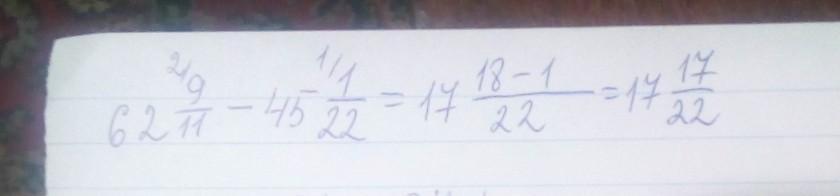 62 ²⁄ 9/11 − 45 ¹⁄ 1/22 = 17 (18−1)/22 = 17 17/22